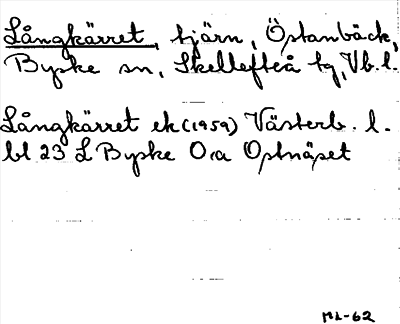 Långkärret, tjärn, Östanbäck,
Byske sn, Skellefteå tg, Vb. l.
Långkärret ek (1959) Västerb. l.
bl 23 L Byske O:a Ostnäset
ML-62